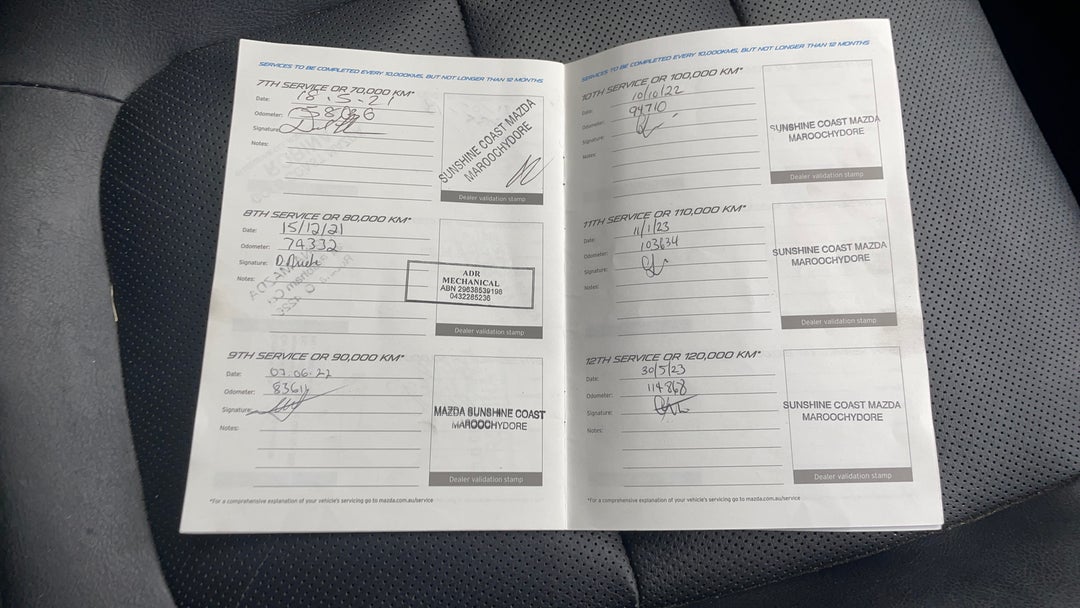 SERVICES TO BE COMPLETED EVERY 10,000KMS, BUT NOT LONGER THAN 12 MONTHS
7TH SERVICE OR 70,000 KM*
Date: 18.5.21
Odometer: 58086
Signature:
Notes:
SUNSHINE COAST MAZDA
MAROOCHYDORE
Dealer validation stamp
8TH SERVICE OR 80,000 KM*
Date: 15/12/21
Odometer: 74332
Signature:
Notes:
ADR
MECHANICAL
ABN 29638539198
0432285236
Dealer validation stamp
9TH SERVICE OR 90,000 KM*
Date: 07.06.22
Odometer: 83611
Signature:
Notes:
MAZDA SUNSHINE COAST
MAROOCHYDORE
Dealer validation stamp
*For a comprehensive explanation of your vehicle's servicing go to mazda.com.au/service
SERVICES TO BE COMPLETED EVERY 10,000KMS, BUT NOT LONGER THAN 12 MONTHS
10TH SERVICE OR 100,000 KM*
Date: 10/10/22
Odometer: 94710
Signature:
Notes:
SUNSHINE COAST MAZDA
MAROOCHYDORE
Dealer validation stamp
11TH SERVICE OR 110,000 KM*
Date: 11/1/23
Odometer: 103634
Signature:
Notes:
SUNSHINE COAST MAZDA
MAROOCHYDORE
Dealer validation stamp
12TH SERVICE OR 120,000 KM*
Date: 30/5/23
Odometer: 114868
Signature:
Notes:
SUNSHINE COAST MAZDA
MAROOCHYDORE
Dealer validation stamp
*For a comprehensive explanation of your vehicle's servicing go to mazda.com.au/service